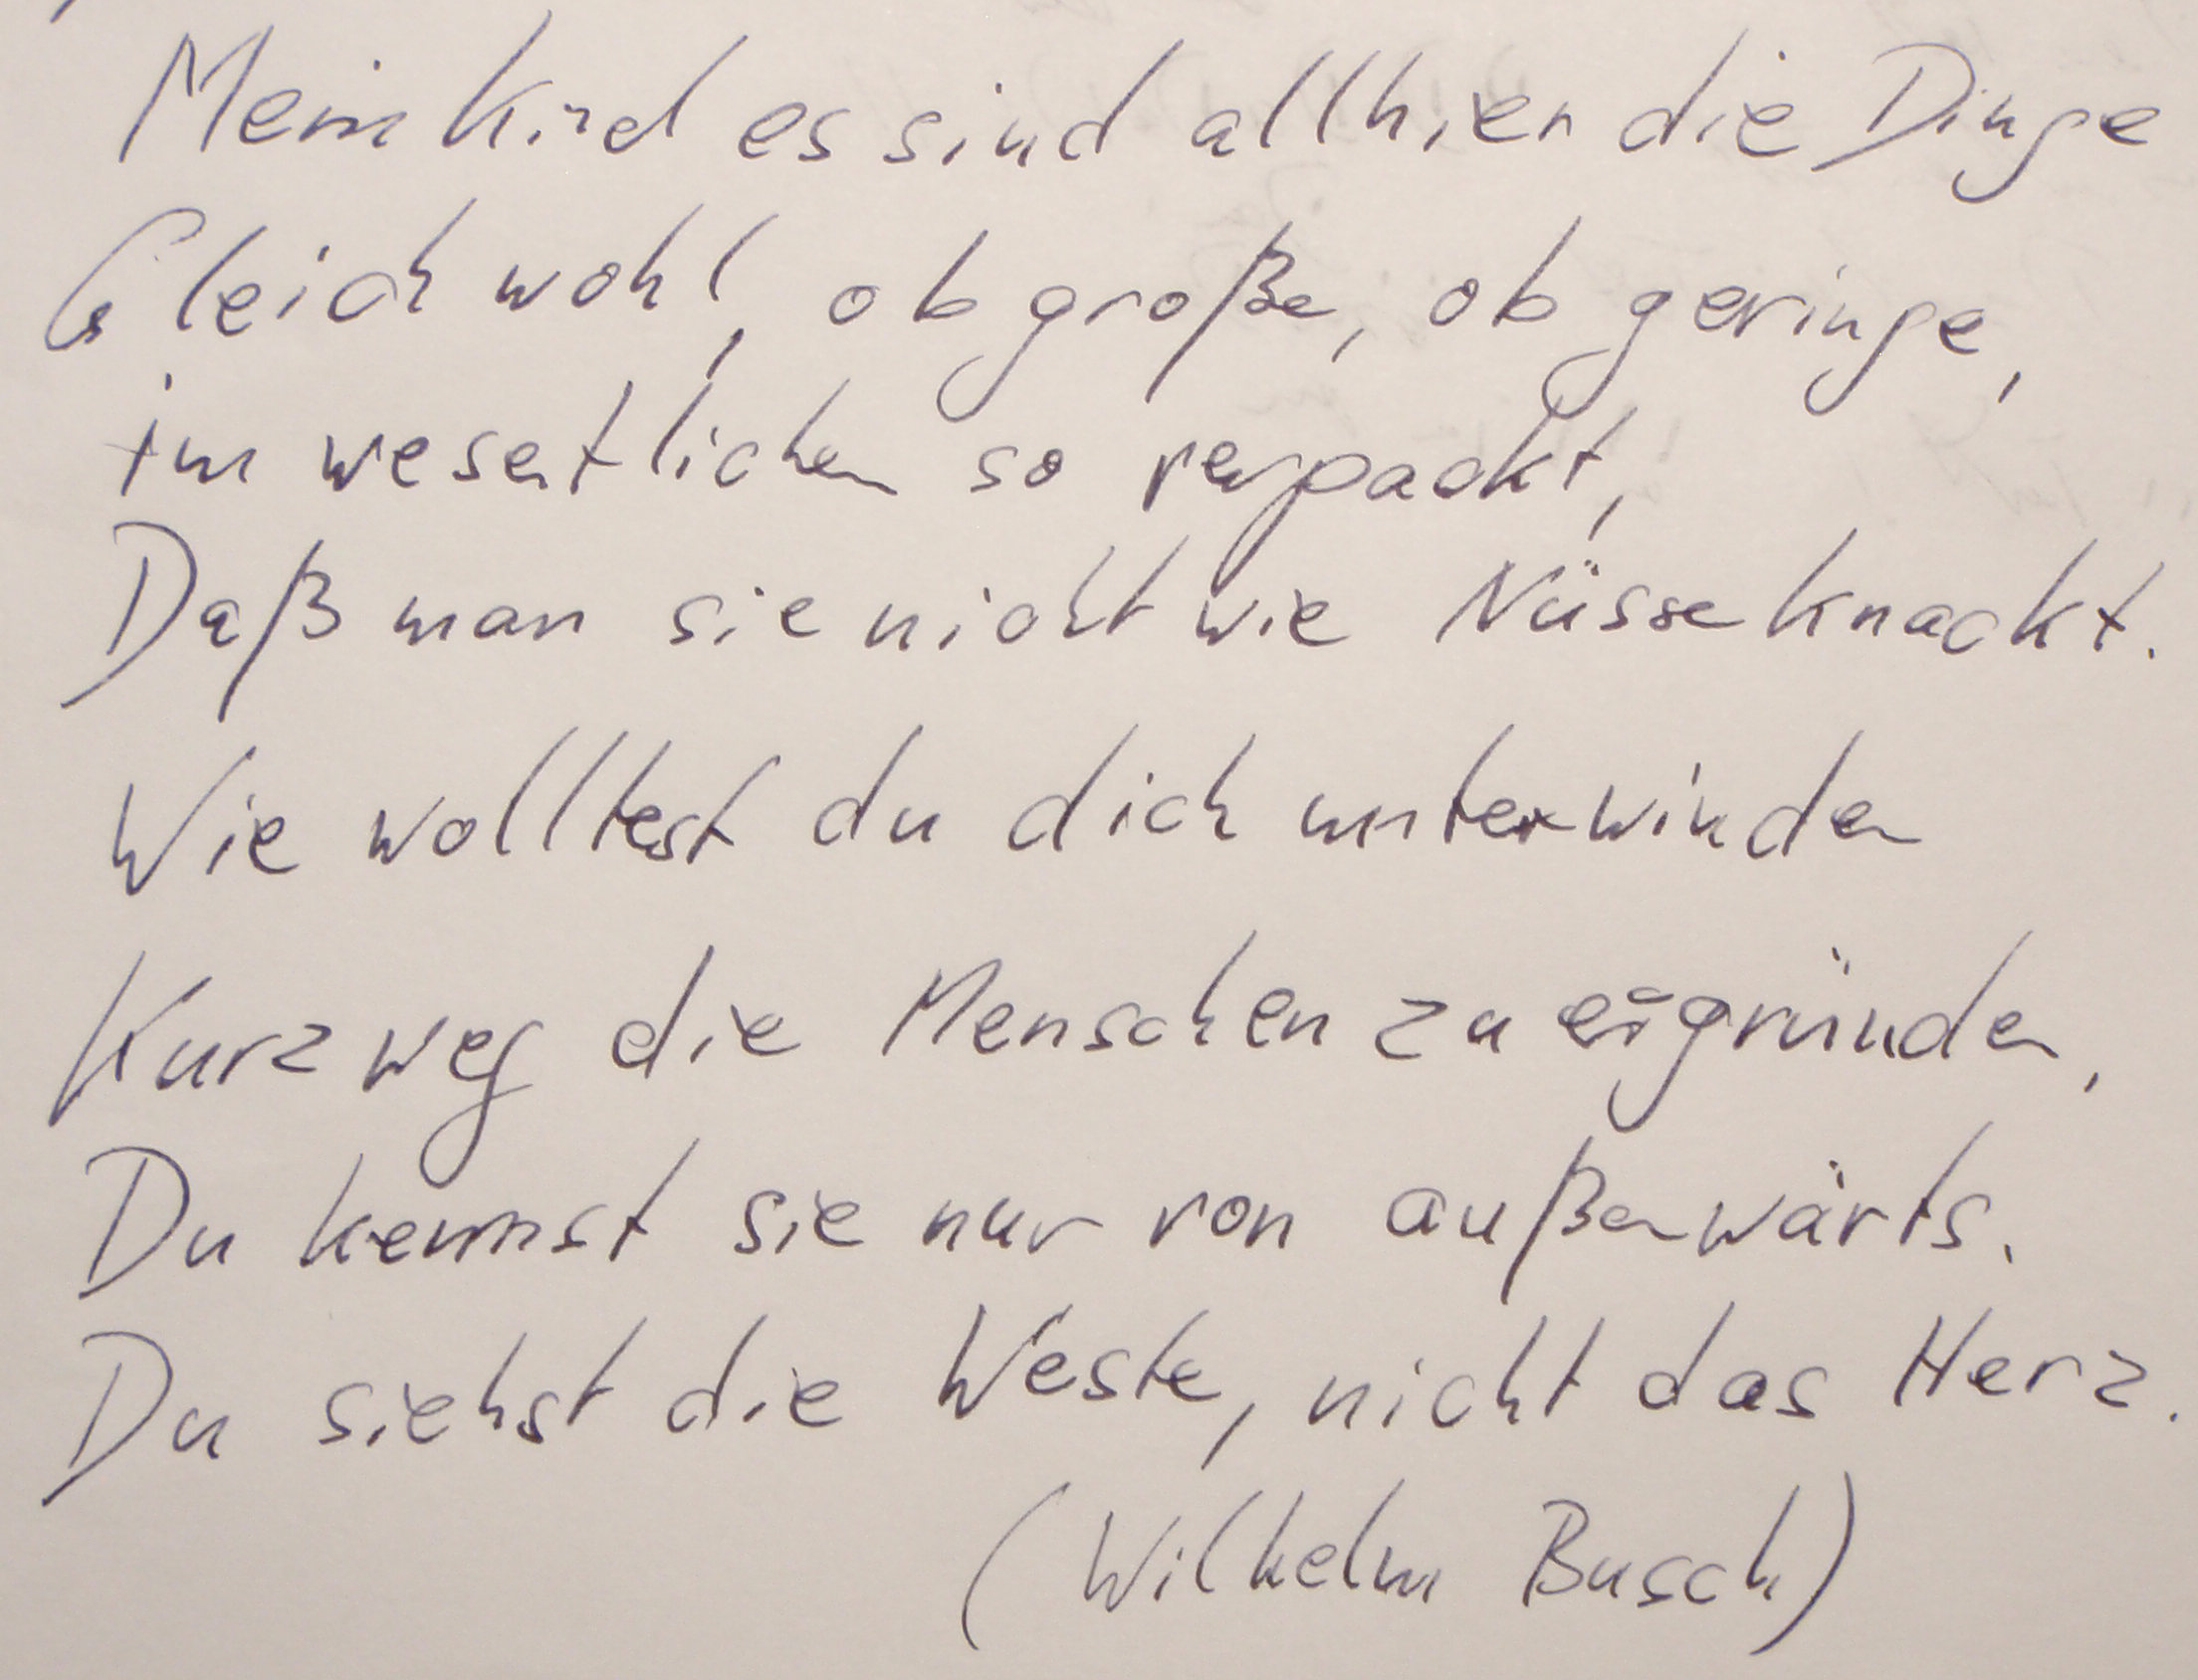 Mein Kind es sind allhier die Dinge
Gleichwohl, ob große, ob geringe,
im wesentlichen so verpackt,
Daß man sie nicht wie Nüsse knackt.
Wie wolltest du dich unterwinden
Kurzweg die Menschen zu ergründen,
Du kennst sie nur von außenwärts.
Du siehst die Weste, nicht das Herz.
(Wilhelm Busch)